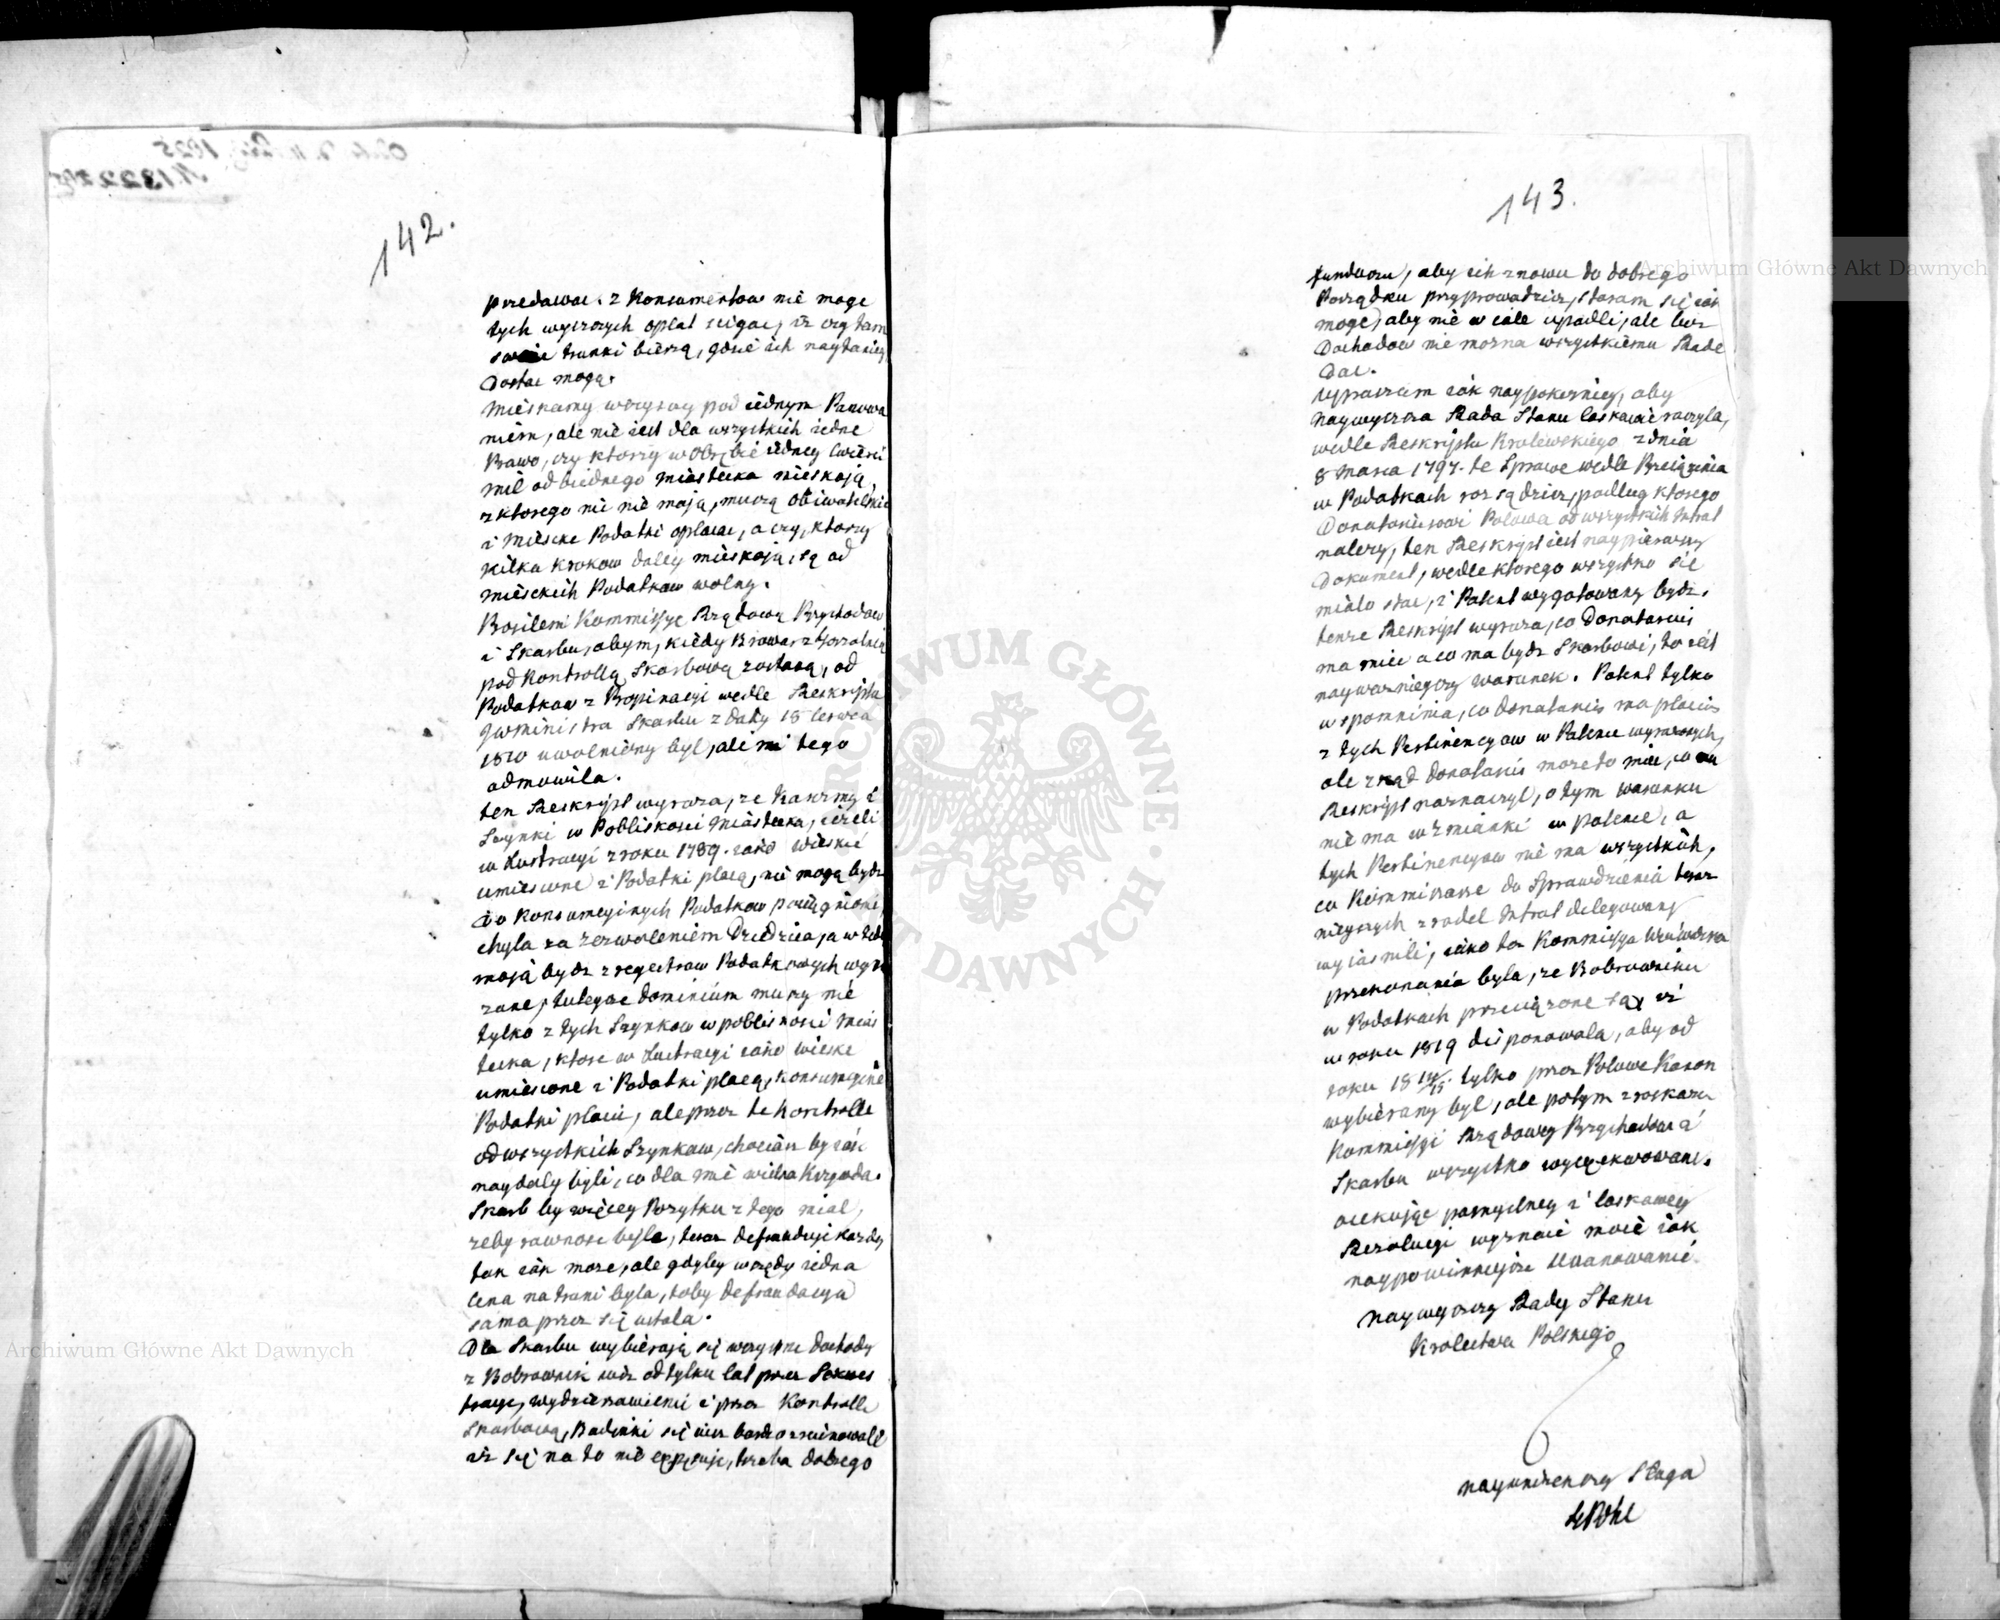 142.
przedawac. z Konsumentow nie moge
tych wyszszych oplat scigac, iż czy tam
swoie trunki bierzą, gdzie ich naytaniey
Dostac mogą.
Mieskamy wszyscy pod iednym Panowa
niem, ale nie iest dla wszystkich iedne
Prawo, czy ktorzy w obrębie iedney cwierci
mil od biednego miastecka mieskają,
z ktorego nic nie mają, muszą
i Mieske Podatki oplacac, a czy, ktorzy
kilka krokow daley mieskają, są od
mieskich Podatkow wolny.
Prosilem Kommissyę Rządową Przychodow
i Skarbu, abym, kiedy Browar z Gorzalnią
pod Kontrollą Skarbową zostaną, od
Podatkow z Propinacyi wedle Reskryptu
JWministra Skarbu z daty 15 Czerwca
1810 uwolniony byl, ale mi tego
odmowila.
ten Reskrypt wyraza, ze Karczmy i
Szynki w Pobliskosci Miastecka, iezeli
w Lustracyi z roku 1789. iako wieskie
umiescone i Podatki placą, nie mogą bydz
do Konsumcyinych Podatkow pociągnione,
chyba za zezwoleniem Dziedzica, a w tedy
mają bydz z regestrow Podatkowych wyma
zane, tuteysze dominium muszy nie
tylko z tych Szynkow w pobliskosci Mias
tecka, ktore w Lustracyi iako wieske
umiescone i Podatki placą, Konsumcyine
Podatki placic, ale przez te Kontrolle
od wszystkich Szynkow, chocian by iak
naydaly byli, co dla mie wielka Krzywda.
Skarb by więcey Pozytku z tego mial,
zeby rownosc byla, teraz defrauduje kazdy
tak iak moze, ale gdyby wszędy iedna
Cena na trunki byla, toby defraudacya
sama przez się ustala.
Dla Skarbu wybierają się wszystkie dochody
z Bobrownik iusz od tylku lat przez Sekwes
tracye, wydzierzawienie i przez Kontrolle
Skarbową, Budinki się iusz bardzo zruinowali
iż się na to nie, trzeba dobrego
143.
funduszu, aby ich znowu do dobrego
Porządku przyprowadzicz, staram się iak
moge, aby nie w cale upadli, ale bez
Dochodow nie mozna wszystkiemu Rade
Dac.
Upraszam iak naypokorniey, aby
naywyszsza Rada Stanu laskawie raczyla,
wedle Reskryptu Krolewskiego z dnia
8 Marca 1797. te Sprawe wedle Przeciązenia
w Podatkach rozsądzicz, podlug ktorego
Donatariuszowi Polowa od wszystkich Intrat
nalezy, ten Reskrypt iest naypierwszy
Dokument, wedle ktorego wszystko się
mialo stac, i Patent wygotowany bydz.
tenze Reskrypt wyraza, co Donatarius
ma miec a co ma bydz Skarbowi, to iest
naywazniejszy warunek. Patent tylko
wspomnina, co donatarius ma placicz
z tych Pertinencyow w Patencie wyrazonych,
ale zkąd donatarius moze to miec, co mu
Reskrypt naznaczyl, o tym warunku
nie ma wzmianki w patencie, a
tych Pertinencyow nie ma wszystkich,
co Kommissarze do Sprawdzenia teraz
nieyszych zrodel Intrat delegowany
wyiasnili, iako tez Kommissya Woiwodzka
przekonania byla, ze Bobrowniki
w Podatkach przeciązone są, iż
w roku 1819 disponowala, aby od
roku 18 14/15. tylko przez Polowe Kanon
wybierany byl, ale potym z roskazu
Kommissyi Rządowey Przychodow i
Skarbu wszystko wyexekwowane.
oczekując pomyslney i laskawey
Rezolucyi wyznaie moie iak
naypowinniejsze Uszanowanie.
naywyszszy Rady Stanu
Krolestwa Polskiego
nayunizenszy Sluga
Archiwum Główne Akt Dawnych
Archiwum Główne Akt Dawnych
ARCHIWUM GŁÓWNE · AKT DAWNYCH ·